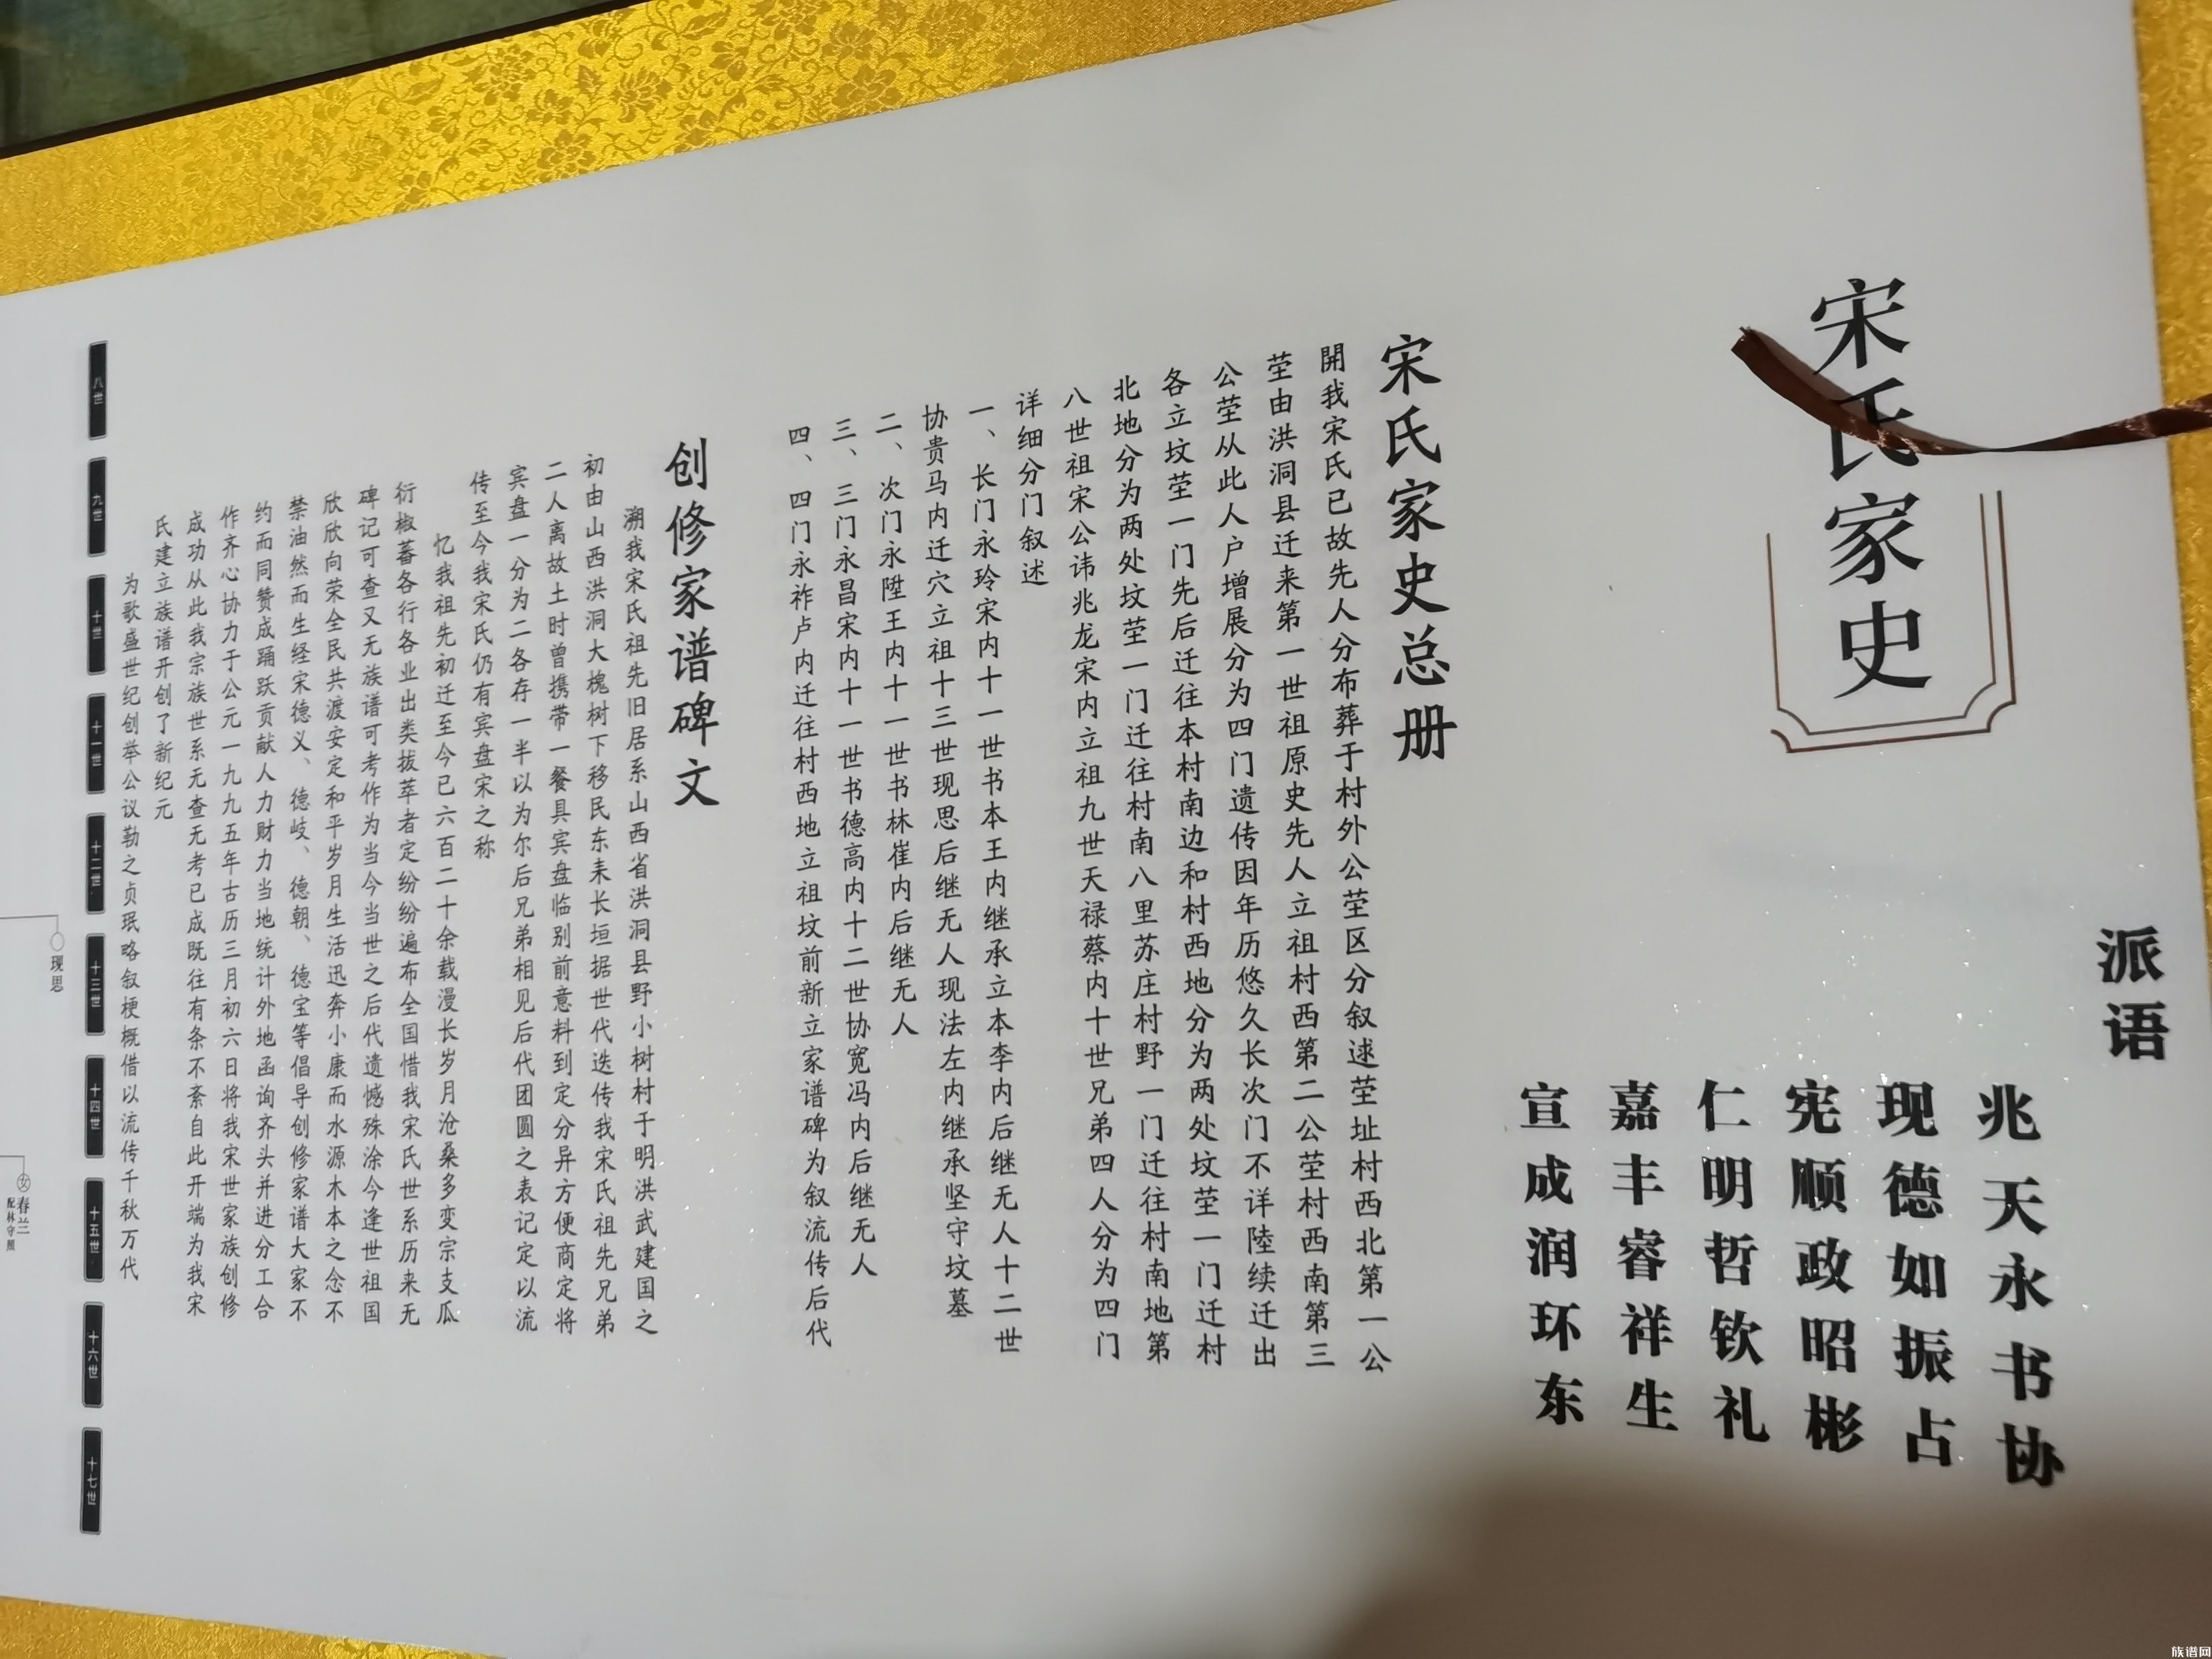 宋氏家史
派语
兆天永书协
现德如振占
宪顺政昭彬
仁明哲钦礼
嘉丰睿祥生
宣成润环东
宋氏家史总册
開我宋氏已故先人分布葬于村外公茔区分叙逑茔址村西北第一公
茔由洪洞县迁来第一世祖原史先人立祖村西第二公茔村西南第三
公茔从此人户增展分为四门遗传因年历悠久长次门不详陸续迁出
各立坟茔一门先后迁往本村南边和村西地分为两处坟茔一门迁村
北地分为两处坟茔一门迁往村南八里苏庄村野一门迁往村南地第
八世祖宋公讳兆龙宋内立祖九世天禄蔡内十世兄弟四人分为四门
详细分门叙述
一、长门永玲宋内十一世书本王内继承立本李内后继无人十二世
协贵马内迁穴立祖十三世现思后继无人现法左内继承坚守坟墓
二、次门永陞王内十一世书林崔内后继无人
三、三门永昌宋内十一世书德高内十二世协宽冯内后继无人
四、四门永祚卢内迁往村西地立祖坟前新立家谱碑为叙流传后代
创修家谱碑文
溯我宋氏祖先旧居系山西省洪洞县野小树村于明洪武建国之
初由山西洪洞大槐树下移民东耒长垣据世代迭传我宋氏祖先兄弟
二人离故土时曾携带一餐具宾盘临别前意料到定分异方便商定将
宾盘一分为二各存一半以为尔后兄弟相见后代团圆之表记定以流
传至今我宋氏仍有宾盘宋之称
忆我祖先初迁至今已六百二十余载漫长岁月沧桑多变宗支瓜
衍椒蕃各行各业出类拔萃者定纷纷遍布全国惜我宋氏世系历来无
碑记可查又无族谱可考作为当今当世之后代遗憾殊涂今逢世祖国
欣欣向荣全民共渡安定和平岁月生活迅奔小康而水源木本之念不
禁油然而生经宋德义、德岐、德朝、德宝等倡导创修家谱大家不
约而同赞成踊跃贡献人力财力当地统计外地函询齐头并进分工合
作齐心协力于公元一九九五年古历三月初六日将我宋世家族创修
成功从此我宗族世系无查无考已成既往有条不紊自此开端为我宋
氏建立族谱开创了新纪元
为歌盛世纪创举公议勒之贞珉略叙梗概借以流传千秋万代
八世
九世
十世
十一世
十二世
十三世
十四世
十五世
十六世
十七世
现思
女
春兰
配林守照
族谱网